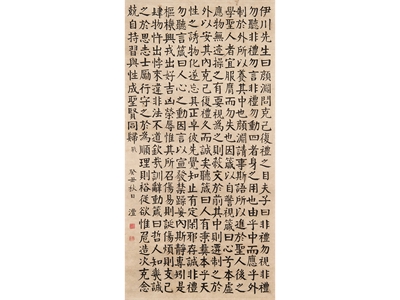 伊川先生曰顏淵問克己復禮之目夫子曰非禮勿視非禮
勿聽非禮勿言非禮勿動四者身之用也由乎中而應乎外
制於外所以養其中也顏淵請事斯語所以進於聖人後之
學聖人者宜服膺而勿失也因箴以自警視箴曰心兮本虛
應物無迹操之有要視為之則蔽交於前其中則遷制之於
外以安其內克己復禮久而誠矣聽箴曰人有秉彝本乎天
性之誘物化遂忘其正卓彼先覺知止有定閑邪存誠非禮
勿聽言箴曰人心之動因言以宣發禁躁妄內斯靜專矧是
樞機興戎出好吉凶榮辱惟其所召傷易則誕傷煩則支己
肆物忤出悖來違非法不道欽哉訓辭動箴曰哲人知幾誠
之於思志士勵行守之於為順理則裕從欲惟危造次克念
兢自持習與性成聖賢同歸 戰
癸丑秋日 澄